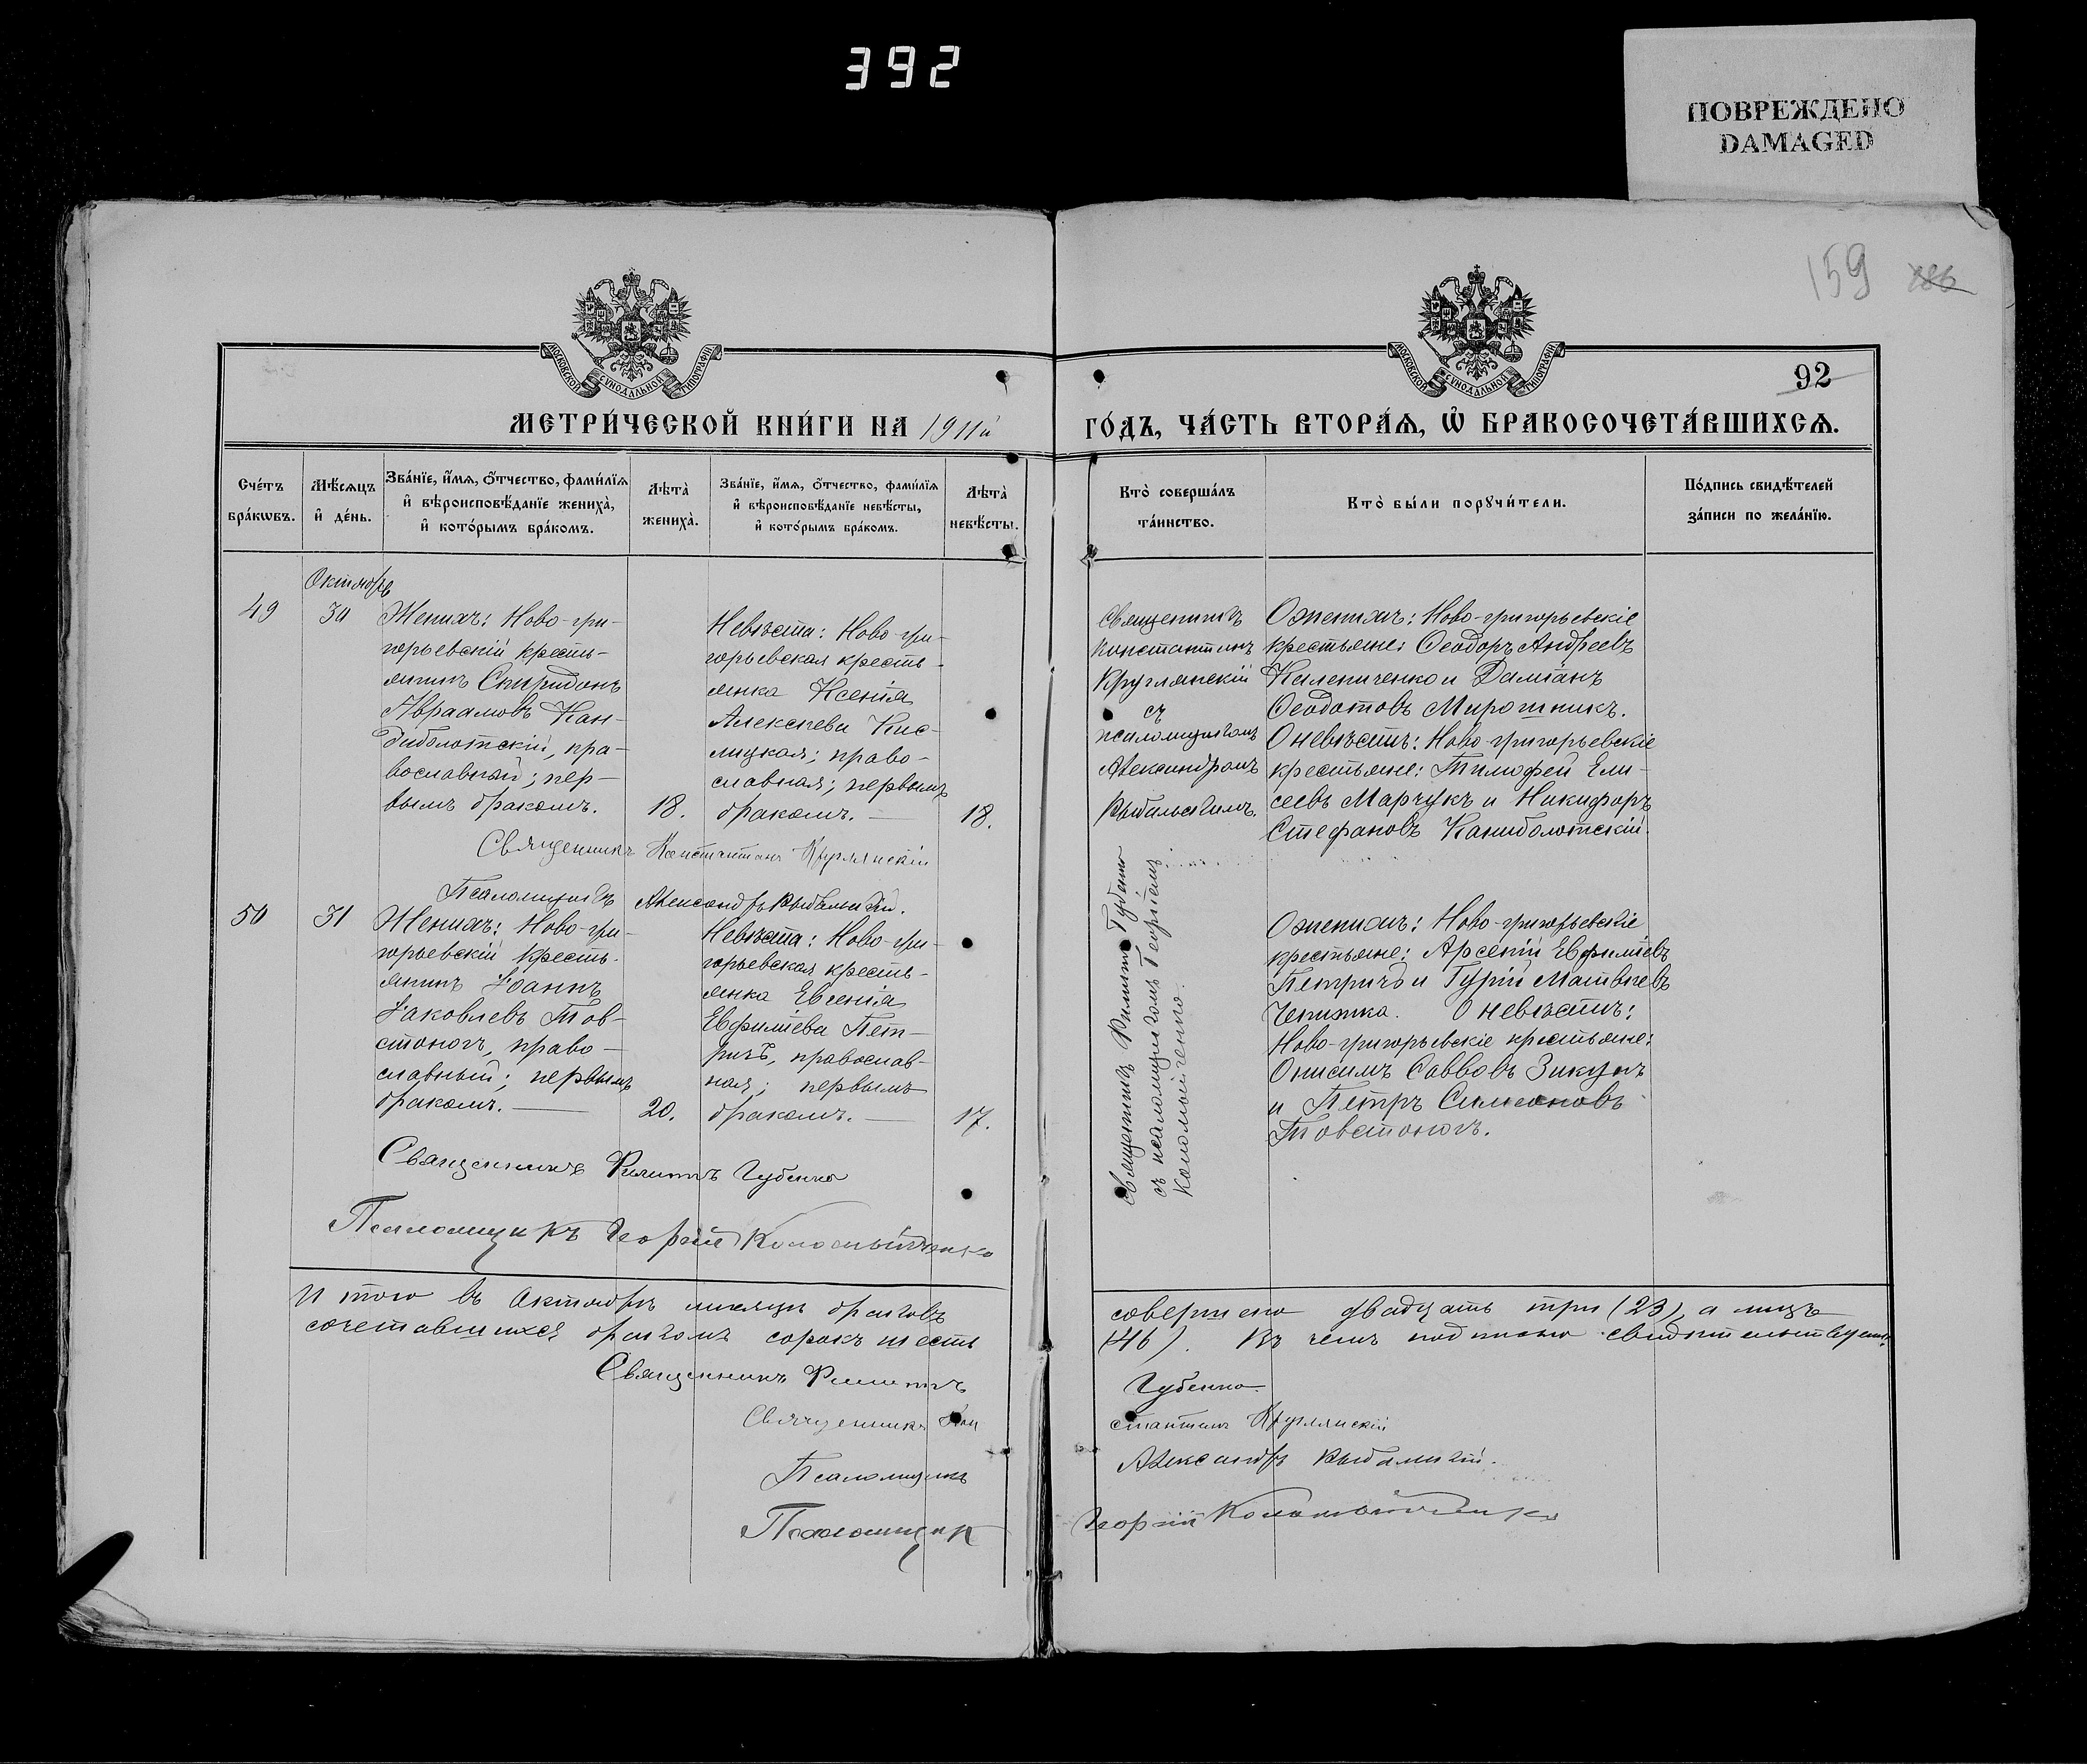 392
ПОВРЕЖДЕНО
DAMAGED
159
92
МОСКОВСКОЙ СѴНОДАЛЬНОЙ ТИПОГРАФІИ
МОСКОВСКОЙ СѴНОДАЛЬНОЙ ТИПОГРАФІИ
МЕТРИ́ЧЕСКОЙ КНИ́ГИ НА 1911й
ГО́ДЪ, ЧА́СТЬ ВТОРА́Ѧ, Ѡ҆ БРАКОСОЧЕТА́ВШИХСѦ.
Сче́тъ
бра́кѡвъ.
Мѣ́сѧцъ
и҆ де́нь.
Зва́нїе, и҆́мѧ, ѻ҆́тчество, фами́лїѧ
и҆ вѣроисповѣ́данїе жениха̀,
и҆ кото́рымъ бра́комъ.
Лѣта̀
жениха̀.
Зва́нїе, и҆́мѧ, ѻ҆́тчество, фами́лїѧ
и҆ вѣроисповѣ́данїе невѣ́сты,
и҆ кото́рымъ бра́комъ.
Лѣта̀
невѣ́сты.
Кто̀ соверша́лъ
та́инство.
Кто̀ бы́ли порꙋчи́тели.
По́дпись свидѣ́телей
за́писи по жела́нїю.
Октября
49
30
Женихъ: Ново-гри-
горьевскій кресть-
янинъ Спиридонъ
Авраамовъ Кан-
диболотскій, пра-
вославный; пер-
вымъ бракомъ.
18.
Невѣста: Ново-гри-
горьевская кресть-
янка Ксенія
Алексѣева Кис-
лицкая; право-
славная; первымъ
бракомъ. —
18.
Священникъ
Константинъ
Круглянскій
съ
псаломщикомъ
Александромъ
Рыбальскимъ.
О женихѣ: Ново-григорьевскіе
крестьяне: Ѳеодоръ Андреевъ
и Даміанъ
Ѳеодотовъ Мирошникъ.
О невѣстѣ: Ново-григорьевскіе
крестьяне: Тимофей Ели-
сеевъ Марчукъ и Никифоръ
Стефановъ Каниболотскій.
Священникъ Константинъ Круглянскій
Псаломщикъ Александръ Рыбальскій.
50
31
Женихъ: Ново-гри-
горьевскій кресть-
янинъ Іоаннъ
Іаковлевъ Тов-
стоногъ, право-
славный; первымъ
бракомъ. —
20.
Невѣста: Ново-гри-
горьевская кресть-
янка Евгенія
Евфиміева Пет-
ричъ, православ-
ная; первымъ
бракомъ. —
17.
Священникъ Филиппъ Губенко
съ псаломщикомъ Георгіемъ
Коломойченко.
О женихѣ: Ново-григорьевскіе
крестьяне: Арсеній Евфиміевъ
Петричъ и Гурій Матвѣевъ
Чепижка. О невѣстѣ:
Ново-григорьевскіе крестьяне:
Онисимъ Савовъ
и Петръ Симеоновъ
Товстоногъ.
Священникъ Филиппъ Губенко
Псаломщикъ Георгій Коломойченко
Итого въ Октябрѣ мѣсяцѣ браковъ совершено двадцать три (23), а лицъ
сочетавшихся бракомъ сорокъ шесть (46). Въ чемъ подписью свидѣтельствуемъ:
Священникъ Филиппъ Губенко.
Священникъ Константинъ Круглянскій
Псаломщикъ Александръ Рыбальскій.
Псаломщикъ Георгій Коломойченко